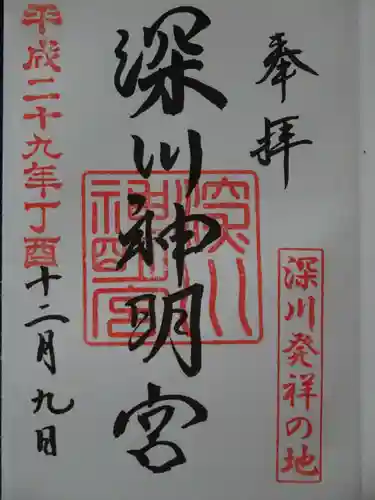 奉拝
深川発祥の地
深川神明宮
深川神明宮
平成二十九年丁酉十二月九日